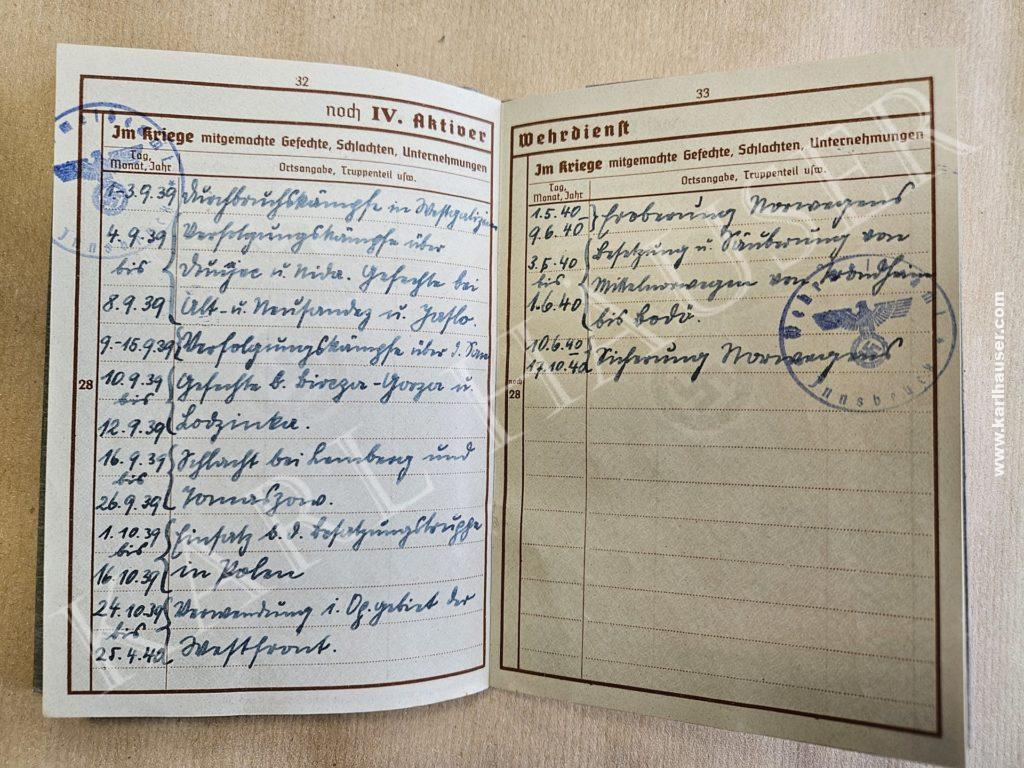 32
noch IV. Aktiver
Im Kriege mitgemachte Gefechte, Schlachten, Unternehmungen
Tag, Monat, Jahr
Ortsangabe, Truppenteil usw.
1.-3.9.39 Durchbruchskämpfe in Westgalizien
4.9.39 Verfolgungskämpfe über
bis Dunajec u. Nida. Gefechte bei
8.9.39 Alt- u. Neusandez u. Jaslo.
9.-15.9.39 Verfolgungskämpfe über d. San
28
10.9.39 Gefechte b. Bircza-Gorza u.
bis
12.9.39 Lodzinka.
16.9.39 Schlacht bei Lemberg und
bis
26.9.39 Tomaszow.
1.10.39 Einsatz b. d. Besatzungstruppe
bis
16.10.39 in Polen
24.10.39 Verwendung i. Op.gebiet der
bis
25.4.40 Westfront.
33
Wehrdienst
Im Kriege mitgemachte Gefechte, Schlachten, Unternehmungen
Tag, Monat, Jahr
Ortsangabe, Truppenteil usw.
1.5.40- Eroberung Norwegens
9.6.40
3.5.40 Besetzung u. Säuberung von
bis Mittelnorwegen von Drondheim
1.6.40 bis Bodö.
10.6.40 Sicherung Norwegens
17.10.40
noch
28
Innsbruck
KARL HAUSER
www.karlhauser.com